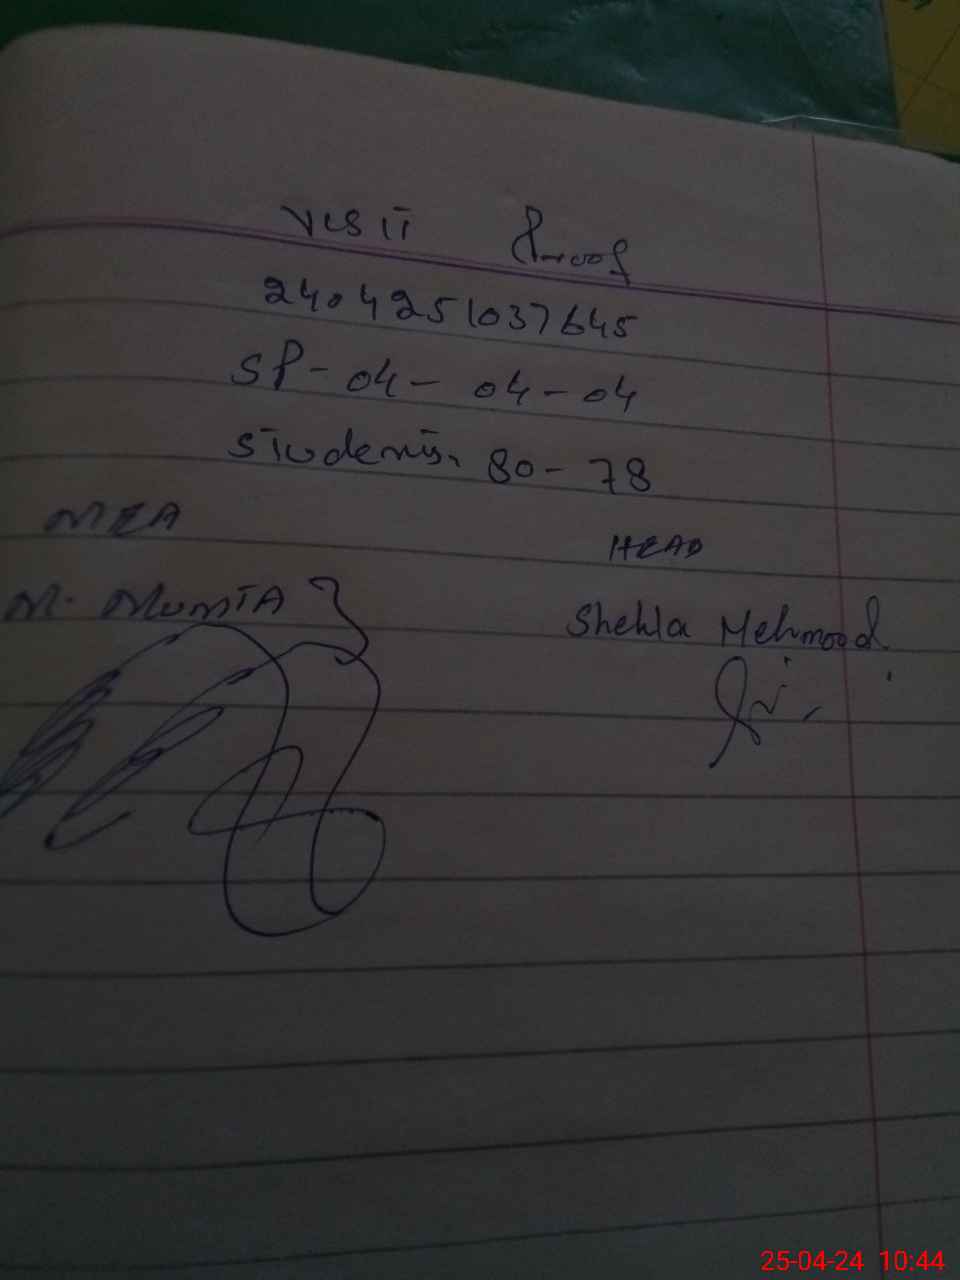 Visit Proof
2404251037645
SP-04-04-04
Students. 80-78
MEA
HEAD
M. MumTAz
Shehla Mehmood
25-04-24 10:44